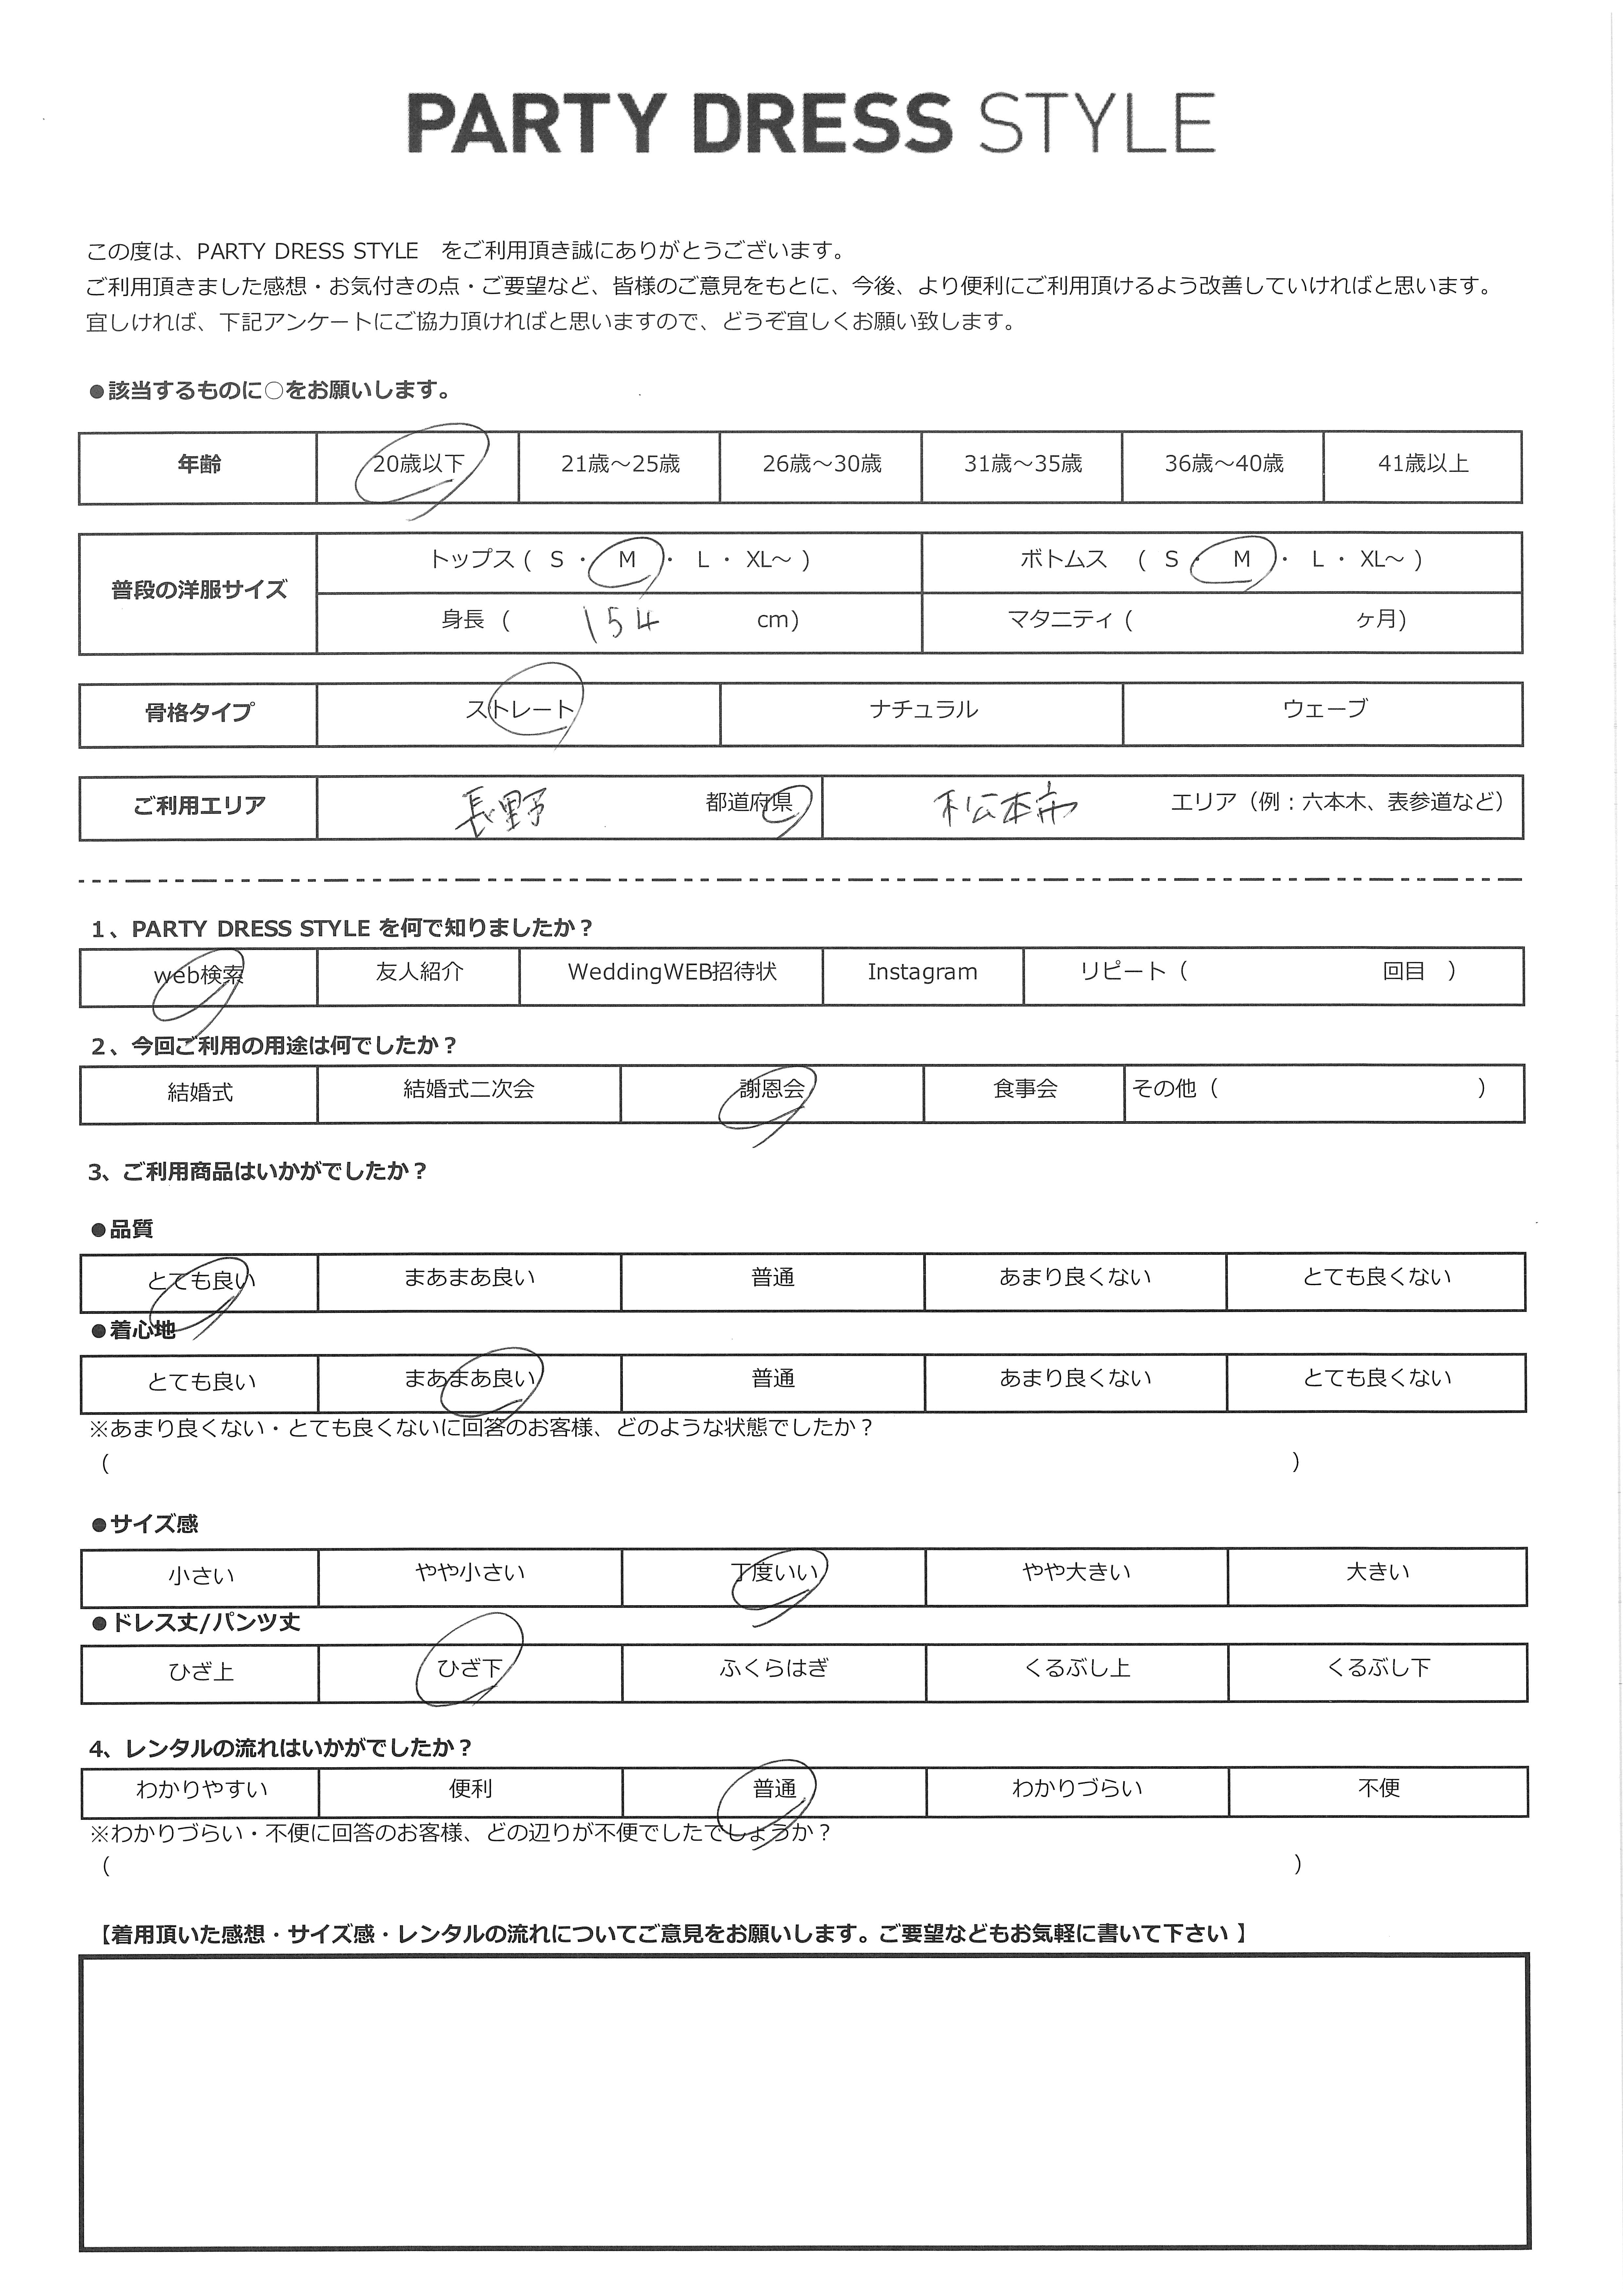 PARTY DRESS STYLE
この度は、PARTY DRESS STYLE　をご利用頂き誠にありがとうございます。
ご利用頂きました感想・お気付きの点・ご要望など、皆様のご意見をもとに、今後、より便利にご利用頂けるよう改善していければと思います。
宜しければ、下記アンケートにご協力頂ければと思いますので、どうぞ宜しくお願い致します。
●該当するものに○をお願いします。
年齢 20歳以下 21歳～25歳 26歳～30歳 31歳～35歳 36歳～40歳 41歳以上
普段の洋服サイズ トップス ( S ・ M ・ L ・ XL～ ) ボトムス ( S ・ M ・ L ・ XL～ )
身長 ( 154 cm) マタニティ ( ヶ月)
骨格タイプ ストレート ナチュラル ウェーブ
ご利用エリア 長野 都道府県 松本市 エリア（例：六本木、表参道など）
1、PARTY DRESS STYLE を何で知りましたか？
web検索 友人紹介 WeddingWEB招待状 Instagram リピート ( 回目 )
2、今回ご利用の用途は何でしたか？
結婚式 結婚式二次会 謝恩会 食事会 その他 ( )
3、ご利用商品はいかがでしたか？
●品質
とても良い まあまあ良い 普通 あまり良くない とても良くない
●着心地
とても良い まあまあ良い 普通 あまり良くない とても良くない
※あまり良くない・とても良くないに回答のお客様、どのような状態でしたか？
( )
●サイズ感
小さい やや小さい 丁度いい やや大きい 大きい
●ドレス丈/パンツ丈
ひざ上 ひざ下 ふくらはぎ くるぶし上 くるぶし下
4、レンタルの流れはいかがでしたか？
わかりやすい 便利 普通 わかりづらい 不便
※わかりづらい・不便に回答のお客様、どの辺りが不便でしたでしょうか？
( )
【着用頂いた感想・サイズ感・レンタルの流れについてご意見をお願いします。ご要望などもお気軽に書いて下さい 】